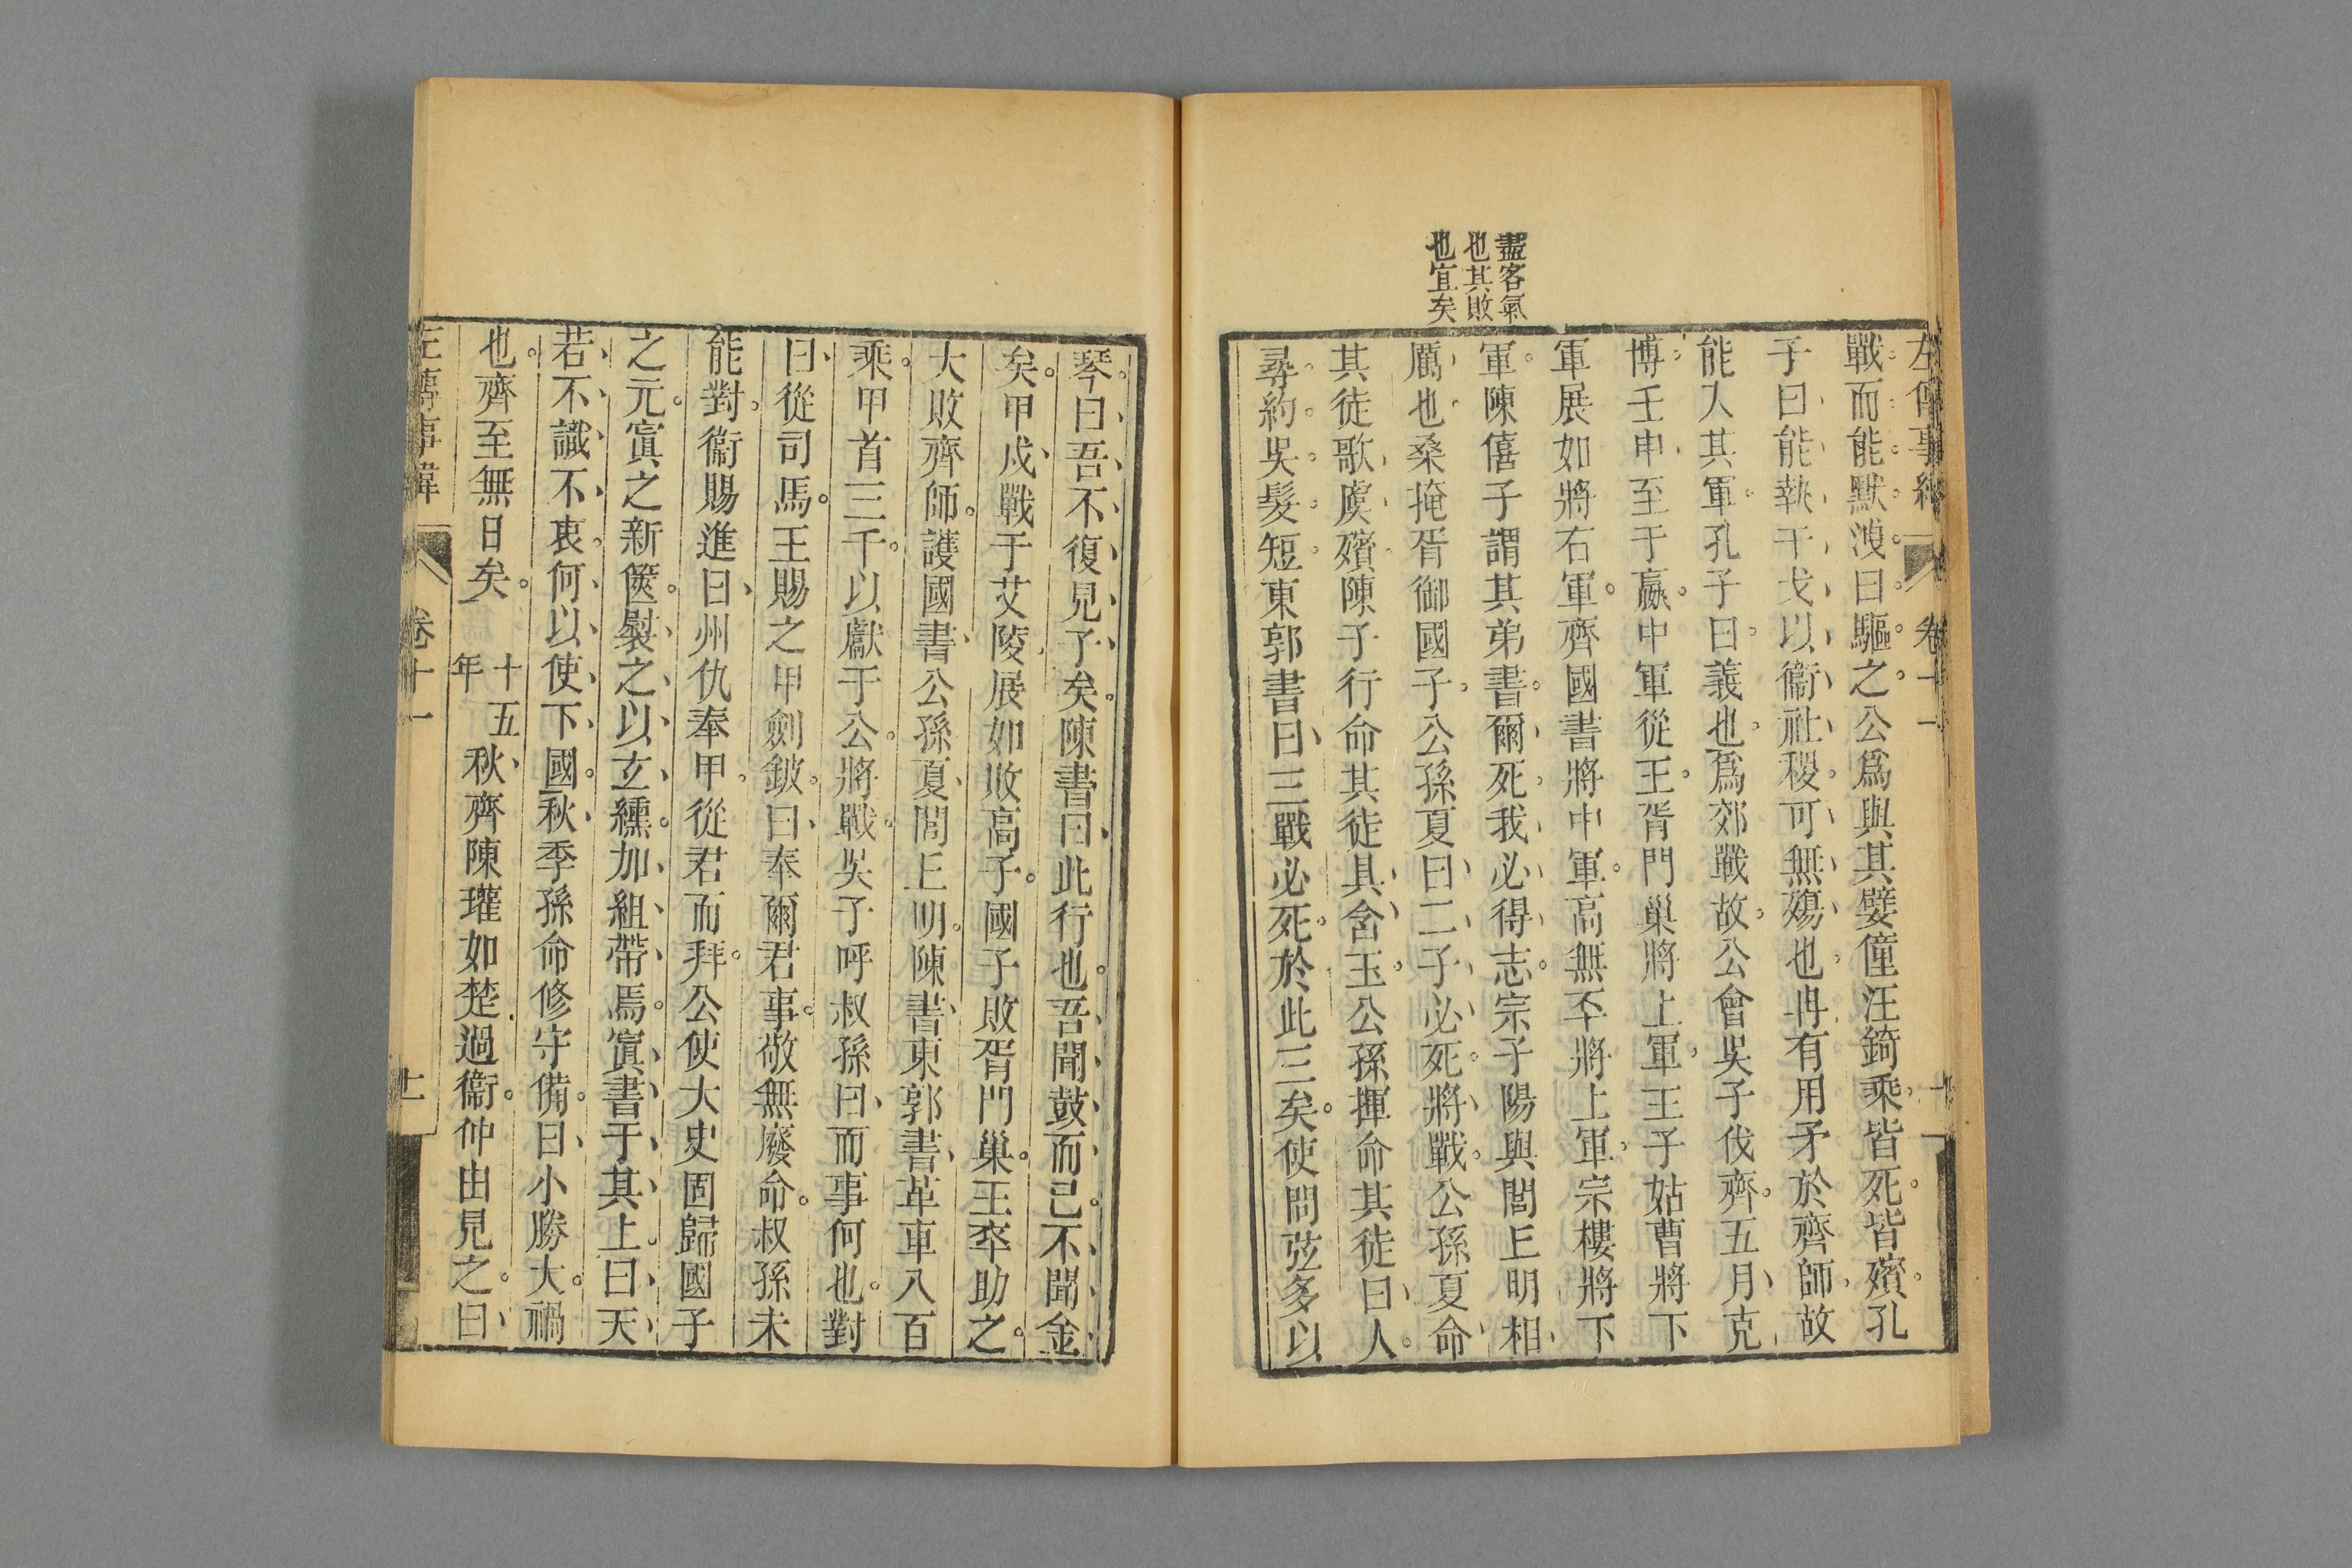 盡客氣
也其敗
也宜矣
左傳事緯 卷十一
戰而能默洩曰驅之公爲與其嬖僮汪錡乘皆死皆殯孔
子曰能執干戈以衞社稷可無殤也冉有用矛於齊師故
能入其軍孔子曰義也爲郊戰故公會吳子伐齊五月克
博壬申至于嬴中軍從王胥門巢將上軍王子姑曹將下
軍展如將右軍齊國書將中軍高無㔻將上軍宗樓將下
軍陳僖子謂其弟書爾死我必得志宗子陽與閭丘明相
厲也桑掩胥御國子公孫夏曰二子必死將戰公孫夏命
其徒歌虞殯陳子行命其徒具含玉公孫揮命其徒曰人
尋約吳髮短東郭書曰三戰必死於此三矣使問弦多以
琴曰吾不復見子矣陳書曰此行也吾聞鼓而已不聞金
矣甲戌戰于艾陵展如敗高子國子敗胥門巢王卒助之
大敗齊師護國書公孫夏閭丘明陳書東郭書革車八百
乘甲首三千以獻于公將戰吳子呼叔孫曰而事何也對
曰從司馬王賜之甲劍鈹曰奉爾君事敬無廢命叔孫未
能對衞賜進曰州仇奉甲從君而拜公使大史固歸國子
之元寘之新篋褽之以玄纁加組帶焉寘書于其上曰天
若不識不衷何以使下國秋季孫命修守備曰小勝大禍
也齊至無日矣 十五年 秋齊陳瓘如楚過衞仲由見之曰
左傳事緯 卷十一 十一